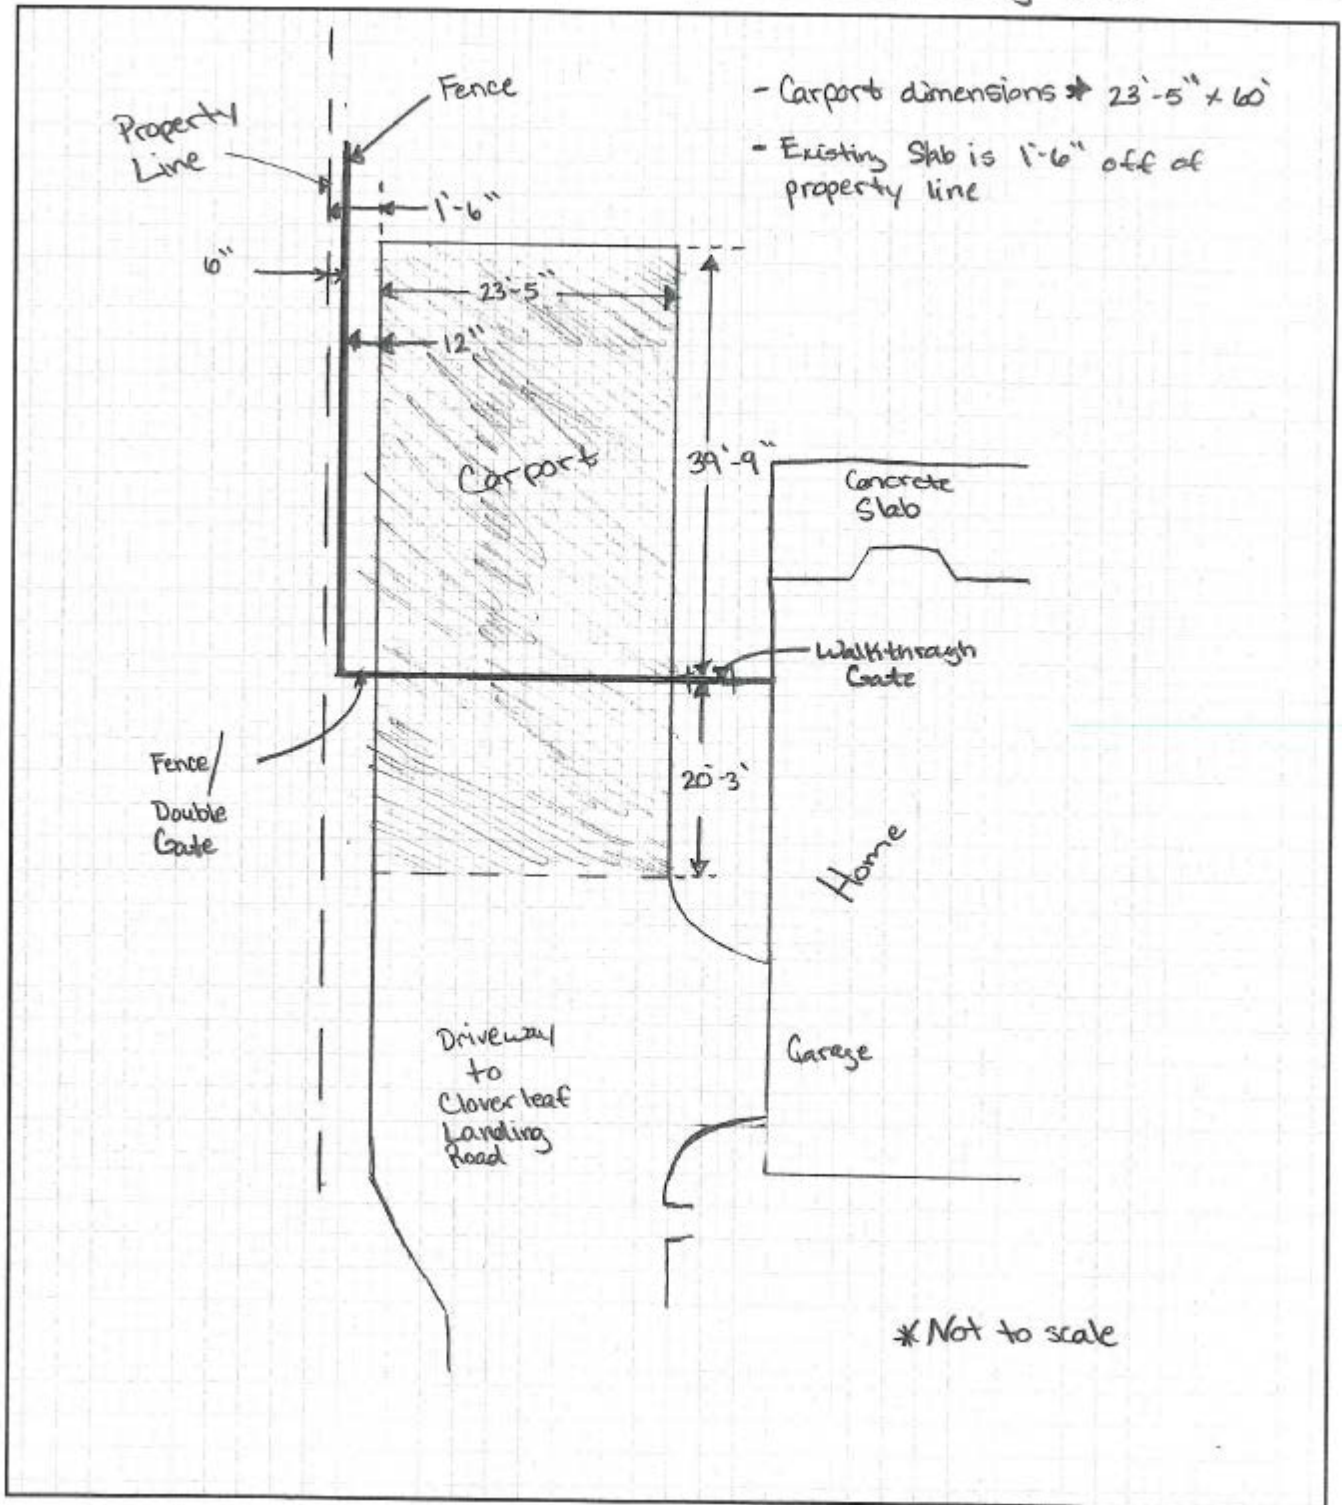 - Carport dimensions * 23'-5" x 60'
- Existing Slab is 1'-6" off of
property line
Fence
Property
Line
1'-6"
6"
23'-5"
12"
Carport
39'-9"
Concrete
Slab
Walkthrough
Gate
Fence/
Double
Gate
20'-3'
Home
Driveway
to
Cloverleaf
Landing
Road
Garage
* Not to scale